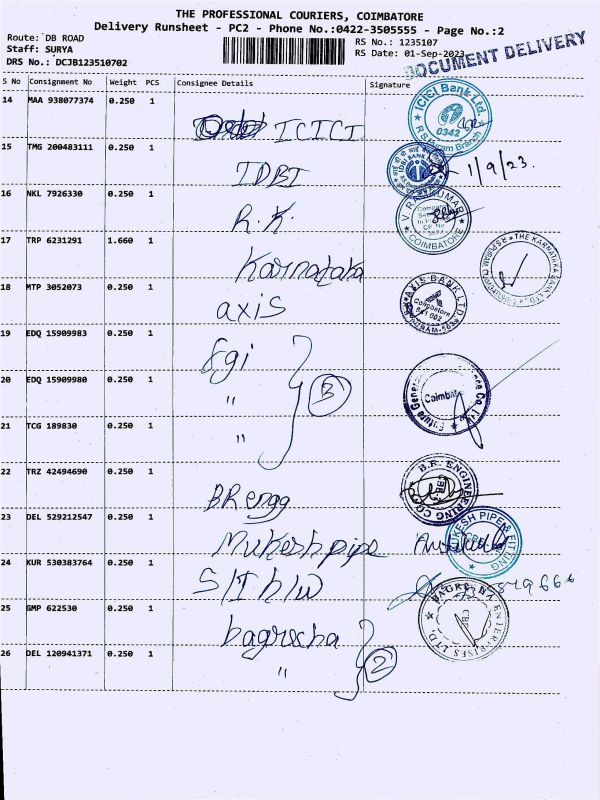 THE PROFESSIONAL COURIERS, COIMBATORE
Delivery Runsheet - PC2 - Phone No.:0422-3505555 - Page No.:2
Route: DB ROAD
RS No.: 1235107
Staff: SURYA
RS Date: 01-Sep-2023
DRS No.: DCJB123510702
DOCUMENT DELIVERY
S No Consignment No Weight PCS Consignee Details Signature
14 MAA 938077374 0.250 1
ICICI
ICICI Bank Ltd. 0342 Branch
15 TMG 200483111 0.250 1
IDBI
IDBI BANK
1/9/23.
16 NKL 7926330 0.250 1
R.K.
COIMBATORE
17 TRP 6231291 1.660 1
Karnataka
THE KARNATAKA BANK LTD.
18 MTP 3052073 0.250 1
axis
AXIS BANK LTD. Coimbatore
19 EDQ 15909983 0.250 1
fgi
20 EDQ 15909980 0.250 1
" 3
21 TCG 189830 0.250 1
"
Future Genera Coimbat
22 TRZ 42494690 0.250 1
BR engg
B.R. ENGINEERING CO
23 DEL 529212547 0.250 1
Mukesh pipe
MUKESH PIPE & FITTING
24 KUR 530383764 0.250 1
S/I h/w
25 GMP 622530 0.250 1
bagrecha
BAGRECHA ENTERPRISES LTD.
CBE
26 DEL 120941371 0.250 1
" 2